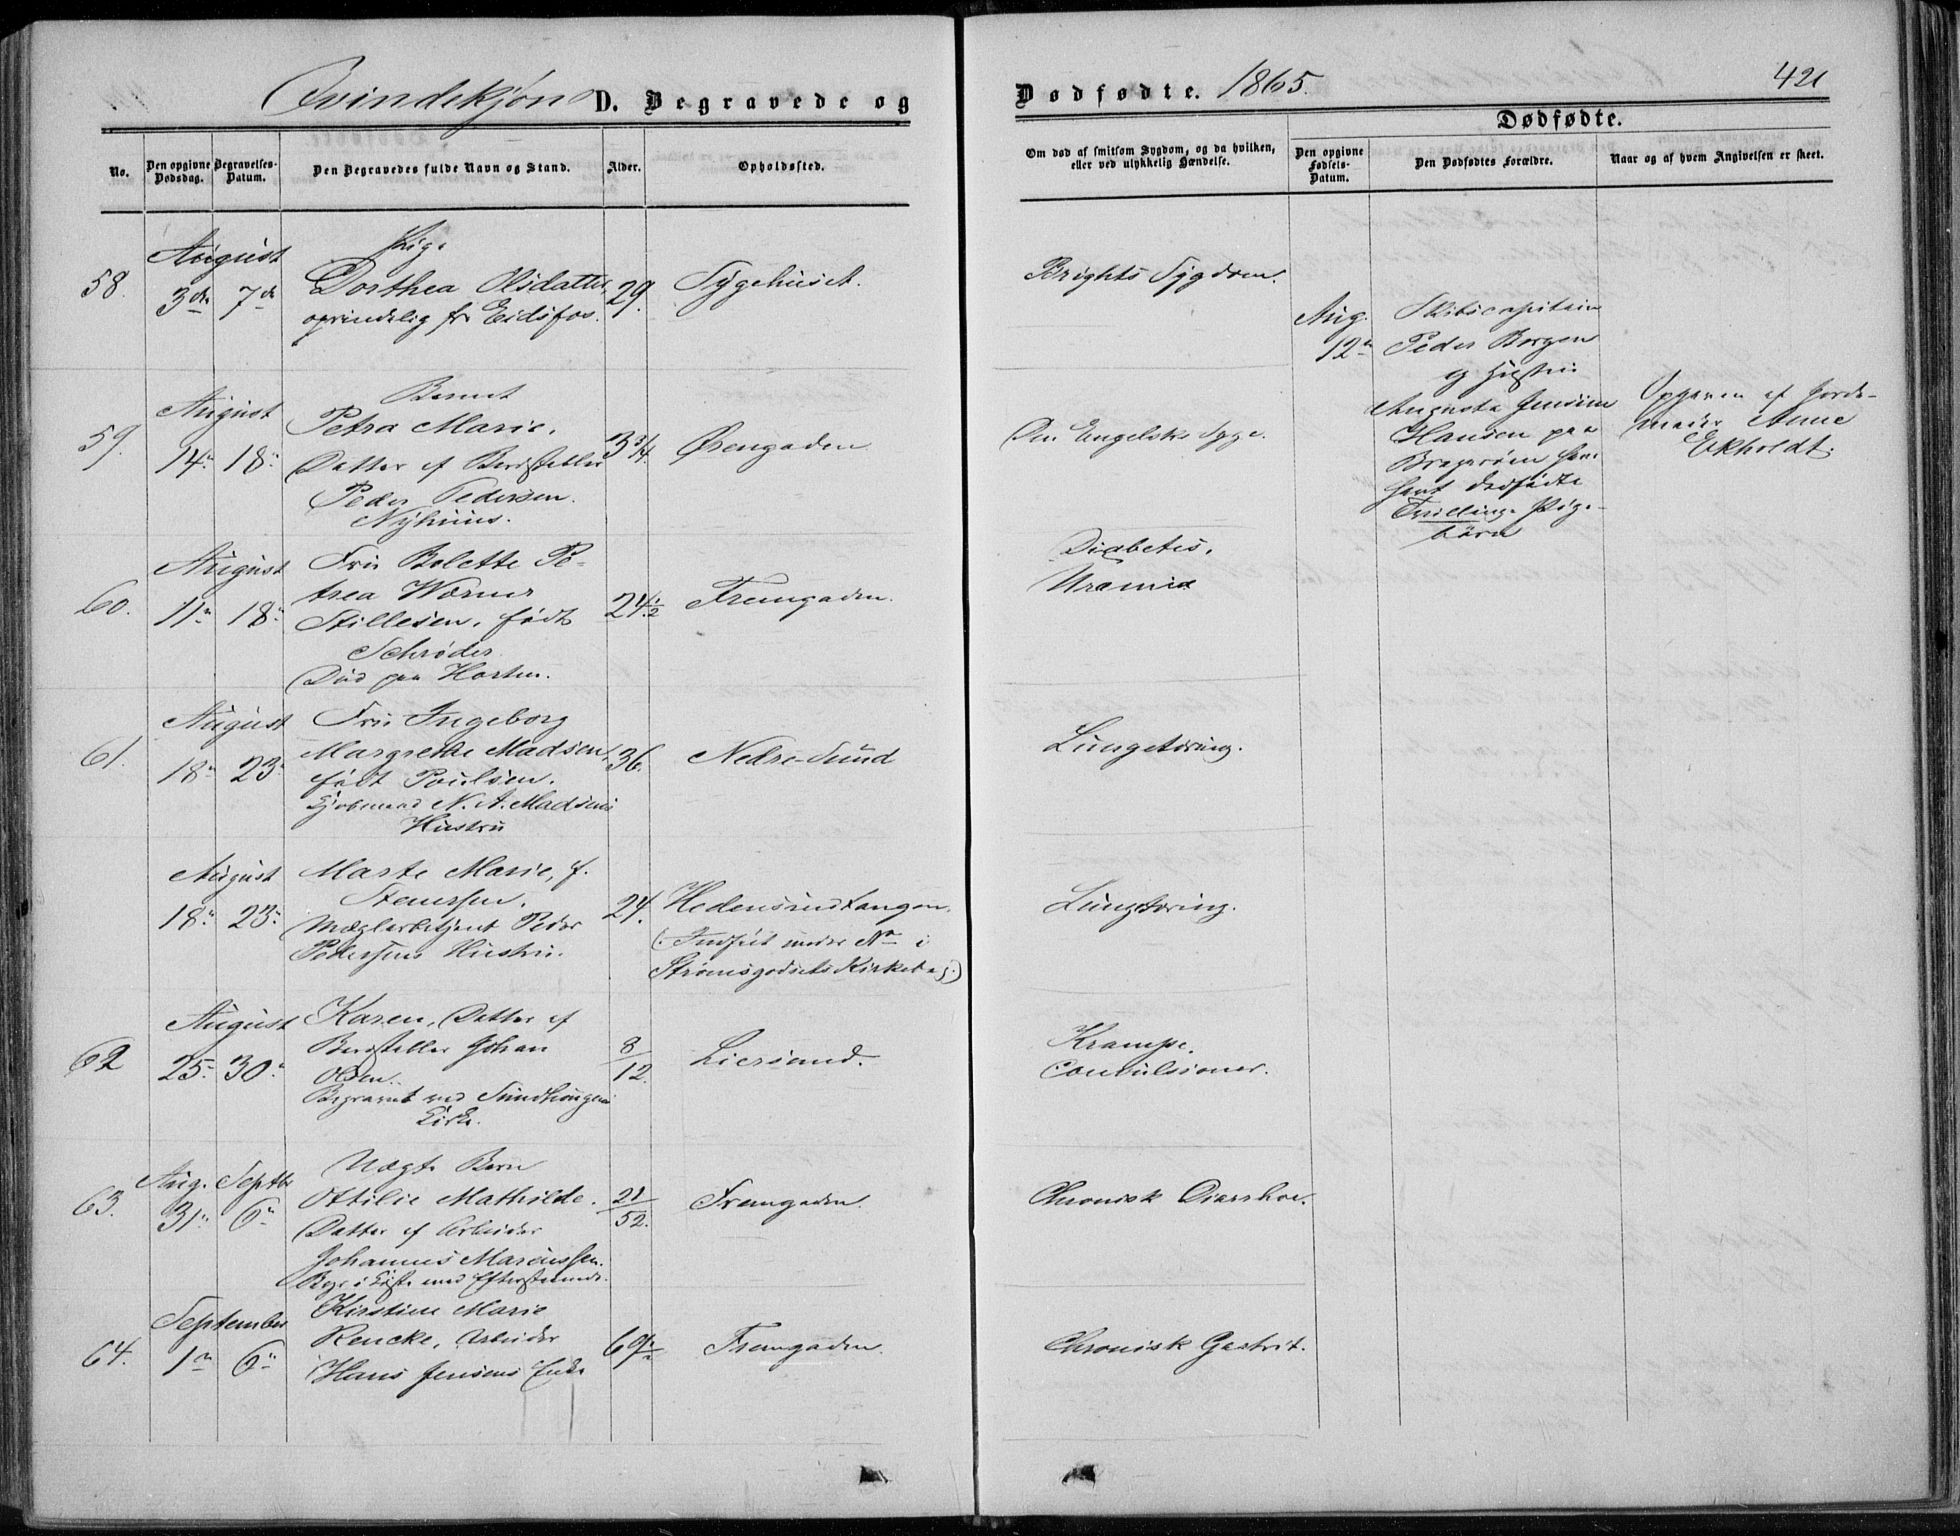 Qvindekjøn D. Begravede og
Dødfødte. 1865. 421
No.
Den opgivne Dødsdag.
Begravelses-Datum.
Den Begravedes fulde Navn og Stand.
Alder.
Opholdssted.
Om død af smitsom Sygdom, og da hvilken, eller ved ulykkelig Hændelse.
Dødfødte.
Den opgivne Fødsels-Datum.
Den Dødfødtes Forældre.
Naar og af hvem Angivelsen er skeet.
58. August 3die 7de
Pige
Dorthea Olsdatter,
oprindelig fra Eidsfos.
29. Sygehuset. Brights Sygdom.
59. August 14de 18de
Barnet
Petra Marie,
Datter af Bordstabler
Peder Pedersen
Nyhuus.
3 3/4. Øvregaden Den Engelske Syge.
60. August 11te 18de
Fru Bolette Pe-
trea Werner
Stillesen, født
Schrøder
Død paa Horten.
24 1/2 Fremgaden. Diabetes.
Uræmie
61. August 18de 23de
Fru Ingeborg
Margrethe Madsen,
født Poulsen.
Kjøbmand N. A. Madsens
Hustru
36. Nedre-Sund Lungetæring.
August 18de 23de
Marte Marie, f.
Stenersen,
Mæglerbetjent Peder
Pedersens Hustru.
24. Hedensundtangen.
(Indført under No i
Strømsgodsets Kirkebog.)
Lungetæring.
62 August 25de 30de
Karen, Datter af
Bordstabler Johan
Olsen.
Begravet ved Sundhougens
Kirke.
8/12. Liersand. Krampe.
Convulsioner.
63. Aug. 31te Septbr 6te
Uægte Barn
Ottilie Mathilde.
Datter af Arbeider
Johannes Marcussen.
21/52. Fremgaden. Chronisk Diarrhoe.
64. September 1ste 6te
Kirstine Marie
Rencke, Arbeider
Hans Jensens Enke
69 1/2 Fremgaden. Chronisk Gastrit.
Aug. 12te
Skibscapitain
Peder Borgen
og Hustru
Augusta Jensine
Hansen paa
Bragerøen have
havt dødfødte
Tvillinge Pige-
børn
Opgaven af Jorde-
moder Anne
Ekholdt.